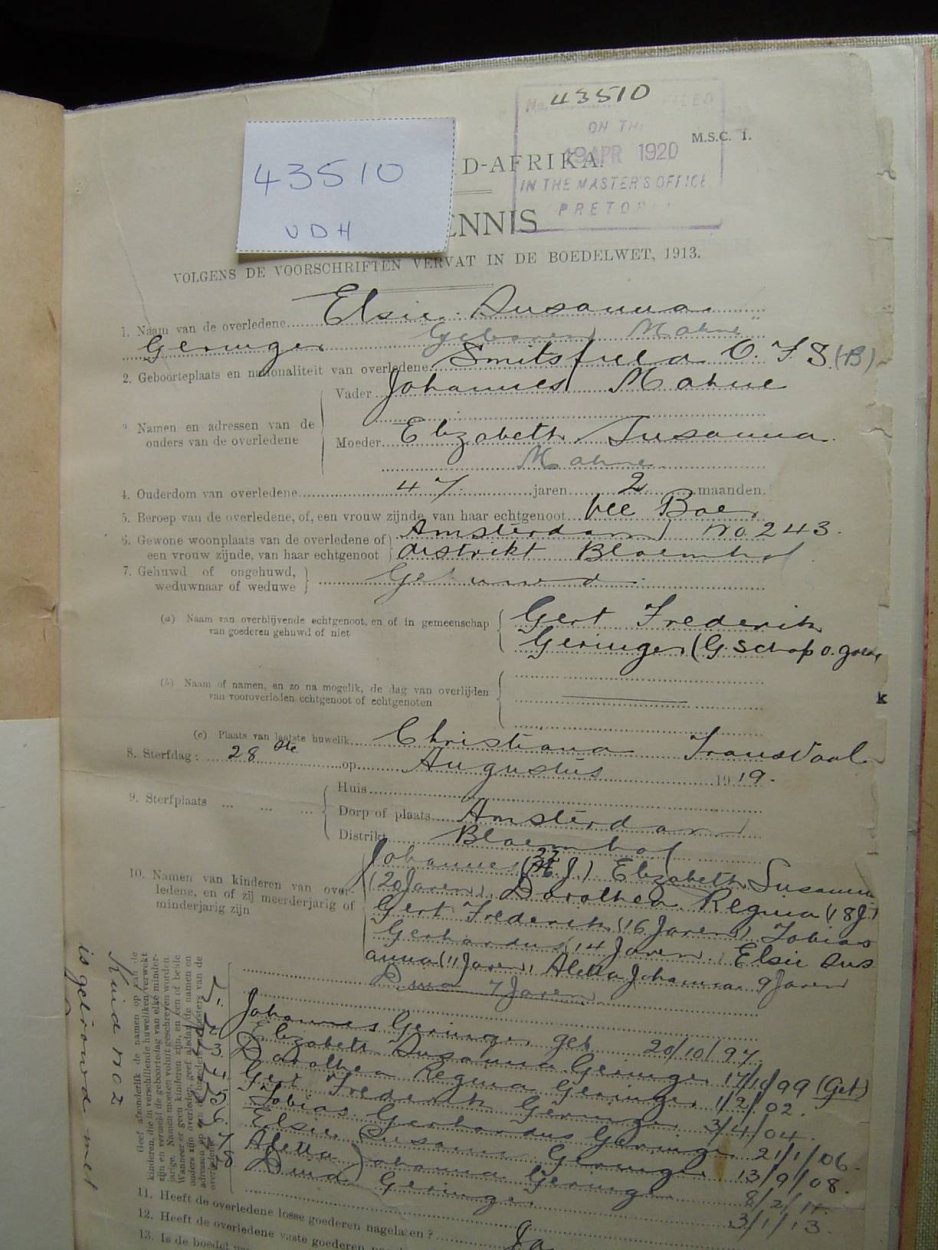 43510
FILED
ON TH
M.S.C. 1.
19 APR 1920
D-AFRIKA.
IN THE MASTER'S OFFICE
PRETOR
43510
VDH
ENNIS
VOLGENS DE VOORSCHRIFTEN VERVAT IN DE BOEDELWET, 1913.
1. Naam van de overledene Elsie Susanna
Geringer Geboren Mahne
2. Geboorteplaats en nationaliteit van overledene Smitsfield O. F S (B)
3 Namen en adressen van de ouders van de overledene
Vader Johannes Mahne
Moeder Elizabeth Susanna
Mahne
4. Ouderdom van overledene 47 jaren 2 maanden.
5. Beroep van de overledene, of, een vrouw zijnde, van haar echtgenoot Vee Boer
6. Gewone woonplaats van de overledene of een vrouw zijnde, van haar echtgenoot
Amsterdam No 243
distrikt Bloemhof
7. Gehuwd of ongehuwd, weduwnaar of weduwe
Gehuwd
(a) Naam van overblijvende echtgenoot, en of in gemeenschap van goederen gehuwd of niet
Gert Frederik
Geringer (G. schap v. goed
(b) Naam of namen, en zo na mogelik, de dag van overlijden van vooroverleden echtgenoot of echtgenoten
K
(c) Plaats van laatste huwelik Christiana Transvaal
8. Sterfdag : 28 ste op Augustus 1919.
9. Sterfplaats
Huis
Dorp of plaats Amsterdam
Distrikt Bloemhof
10. Namen van kinderen van overledene, en of zij meerderjarig of minderjarig zijn
Johannes (22 J.) Elizabeth Susanna
(20 Jaren), Dorothea Regina (18 J)
Gert Frederik (16 Jaren) Tobias
Gerhardus (14 Jaren), Elsie Sus
anna (11 Jaren), Aletta Johanna 9 Jaren
7 Jaren
Johannes Geringer geb. 20/10/97
2 Elizabeth Susanna Geringer 17/10/99 (Get)
3 Dorothea Regina Geringer 1/2/02.
Gert Frederik Geringer 3/4/04
5 Tobias Gerhardus Geringer 21/1/06
6. Elsie Susanna Geringer 13/9/08.
7 Aletta Johanna Geringer 8/2/11
8 Geringer 3/1/13.
Kind no 2
is getrouwd met
11. Heeft de overledene losse goederen nagelaten ? Ja
12. Heeft de overledene vaste goederen
13. Is de boedel